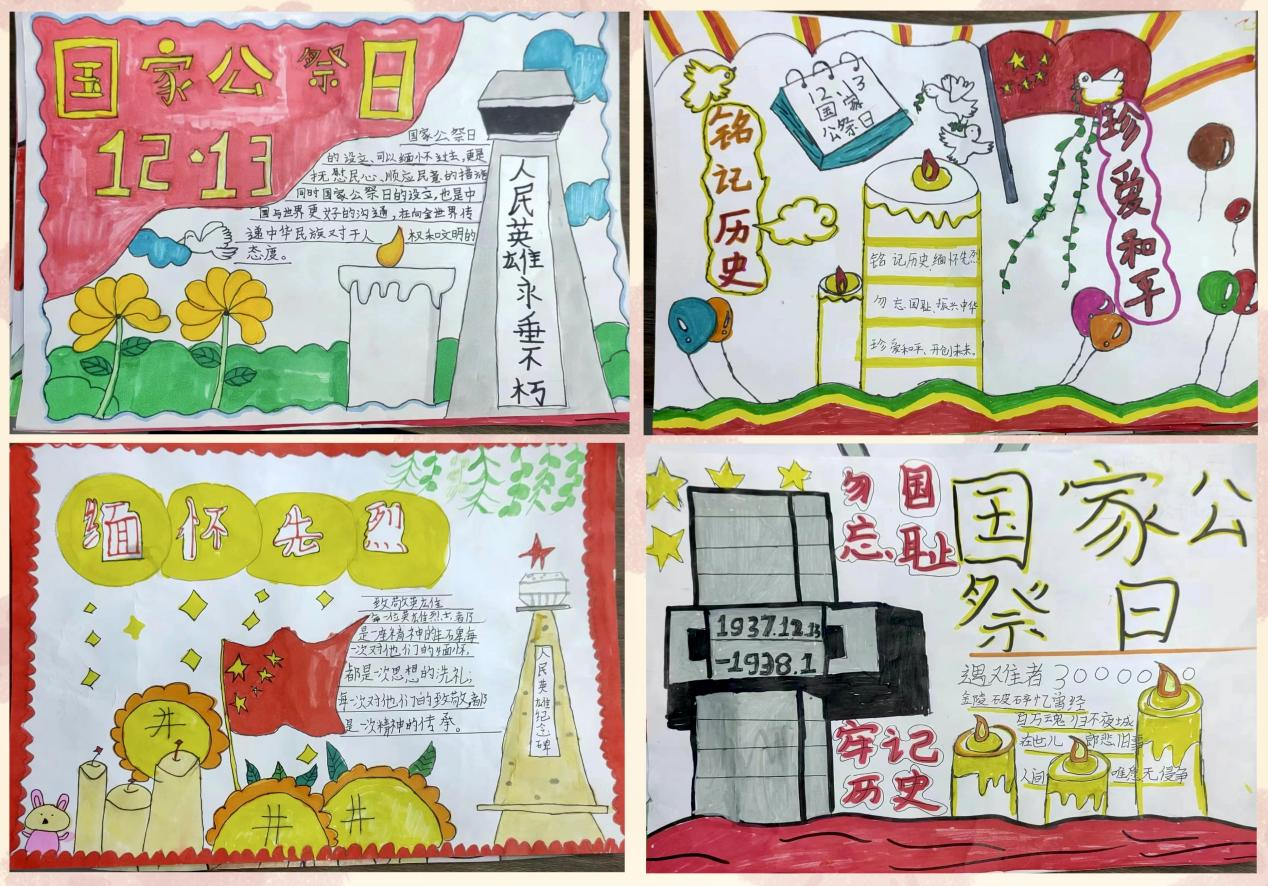 国家公祭日
12·13
国家公祭日
的设立、可以缅怀过去,更是
抚慰民心、顺应民意的措施
同时国家公祭日的设立,也是中
国与世界更好的沟通,在向全世界传
递中华民族对于人权和文明的
态度。
人民英雄永垂不朽
铭记历史
12.13
国家
公祭日
珍爱和平
铭记历史、缅怀先烈
勿忘国耻、振兴中华
珍爱和平、开创未来。
缅怀先烈
致敬英雄
每一位英雄烈士,都
是一座精神的丰碑,每
一次对他们的缅怀,
都是一次思想的洗礼;
每一次对他们的致敬,都
是一次精神的传承。
人民英雄纪念碑
勿忘国耻
国家公
祭日
1937.12.13
-1938.1
遇难者300000
金陵破碎忆曾经
百万魂归不夜城
人间唯愿无侵争
牢记
历史